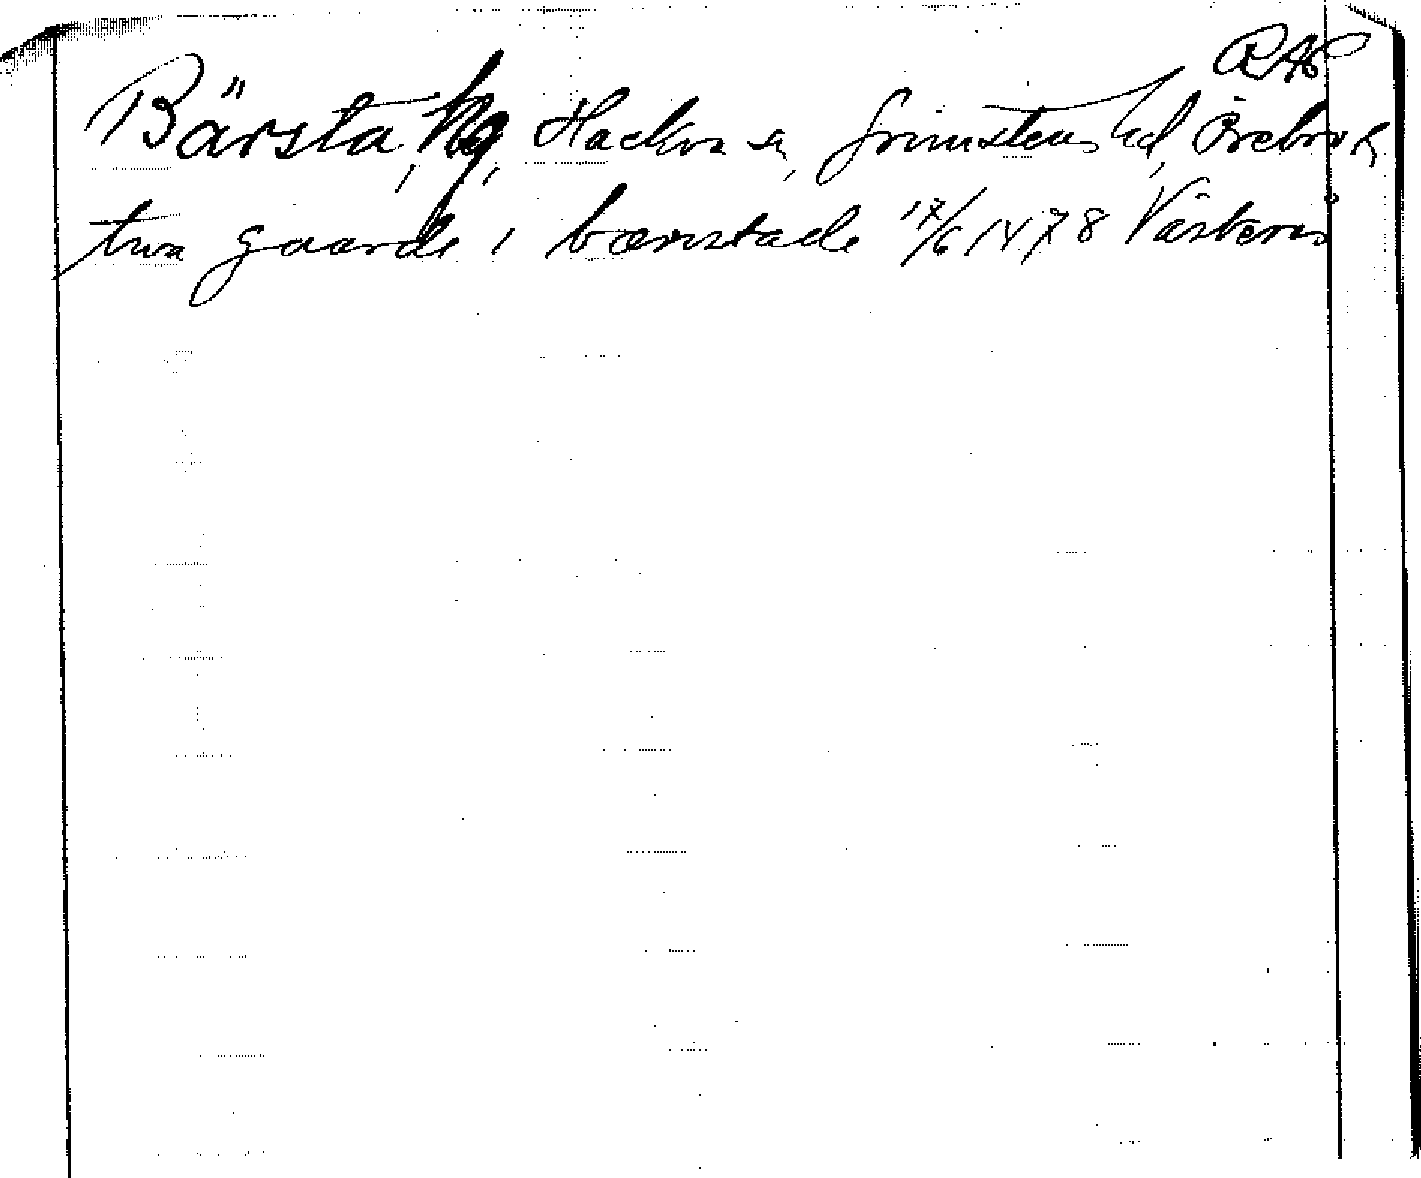 RAP
Bärsta, kg, Hackva sn, Grimstens hd, Örebro l
twa gaarde i bærstade 17/6 1478 Västerås